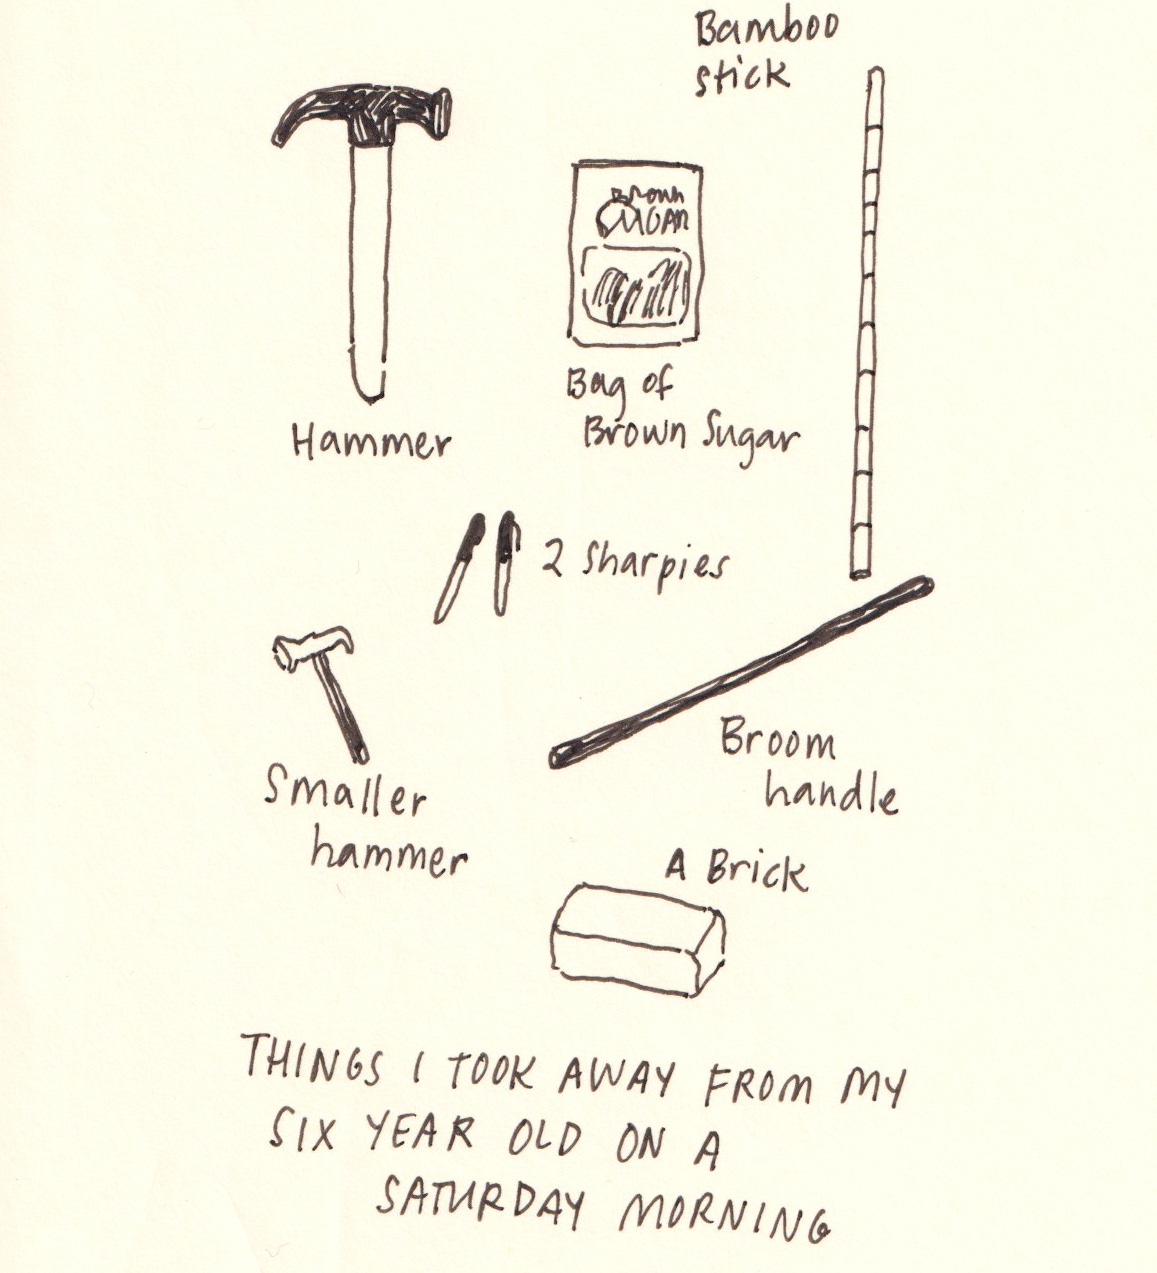 Bamboo
stick
Brown
SUGAR
Bag of
Brown Sugar
Hammer
2 Sharpies
Smaller
hammer
Broom
handle
A Brick
THINGS I TOOK AWAY FROM MY
SIX YEAR OLD ON A
SATURDAY MORNING